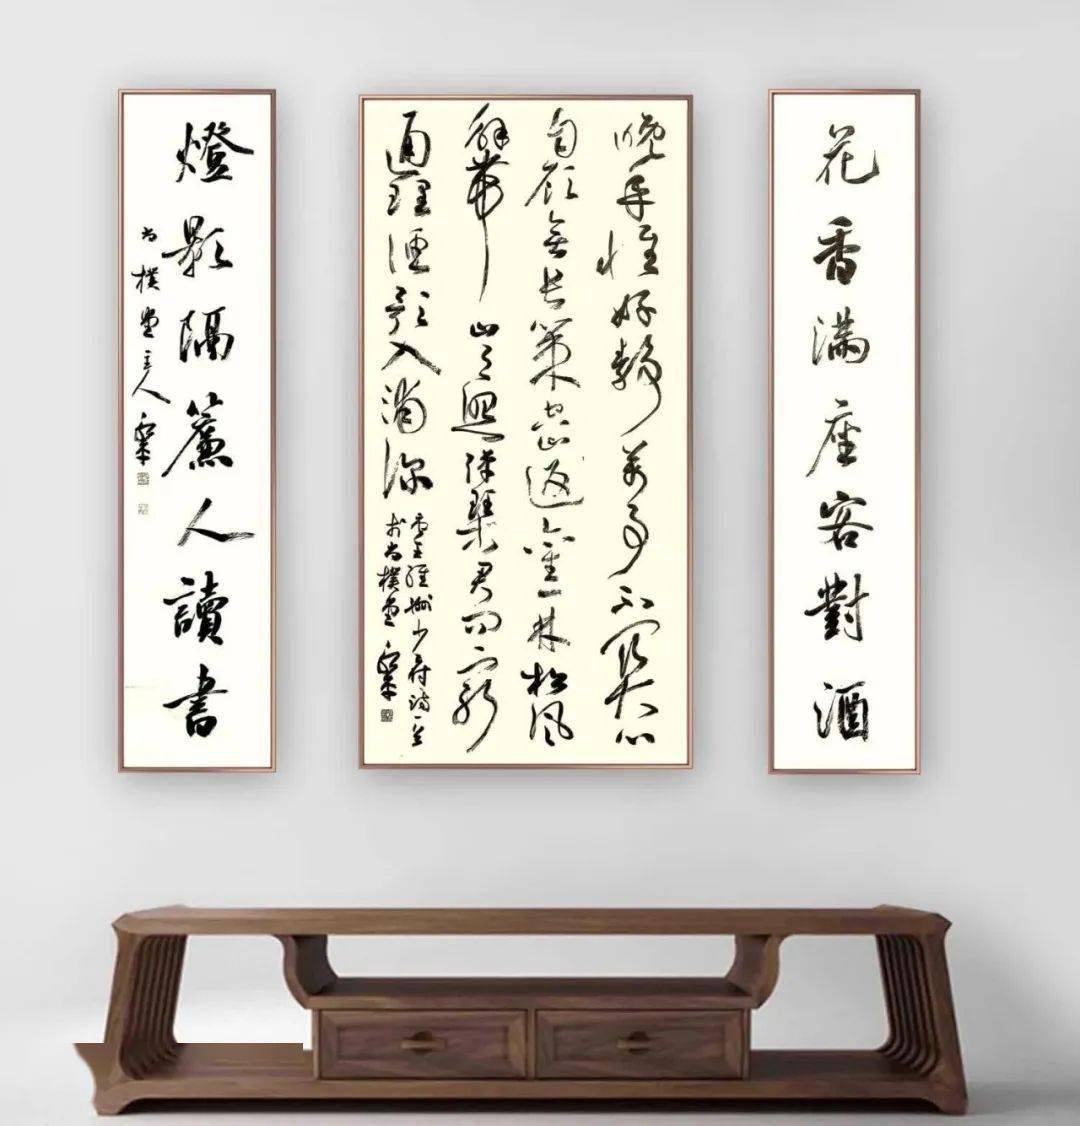 花香满座客對酒
晚年惟好靜萬事不關心
自顧無長策空知返舊林松風
解帶山月照彈琴君問窮
通理漁歌入浦深
書王維酬少府詩一首
於尚樸堂
燈影隔簾人讀書
尚樸堂主人